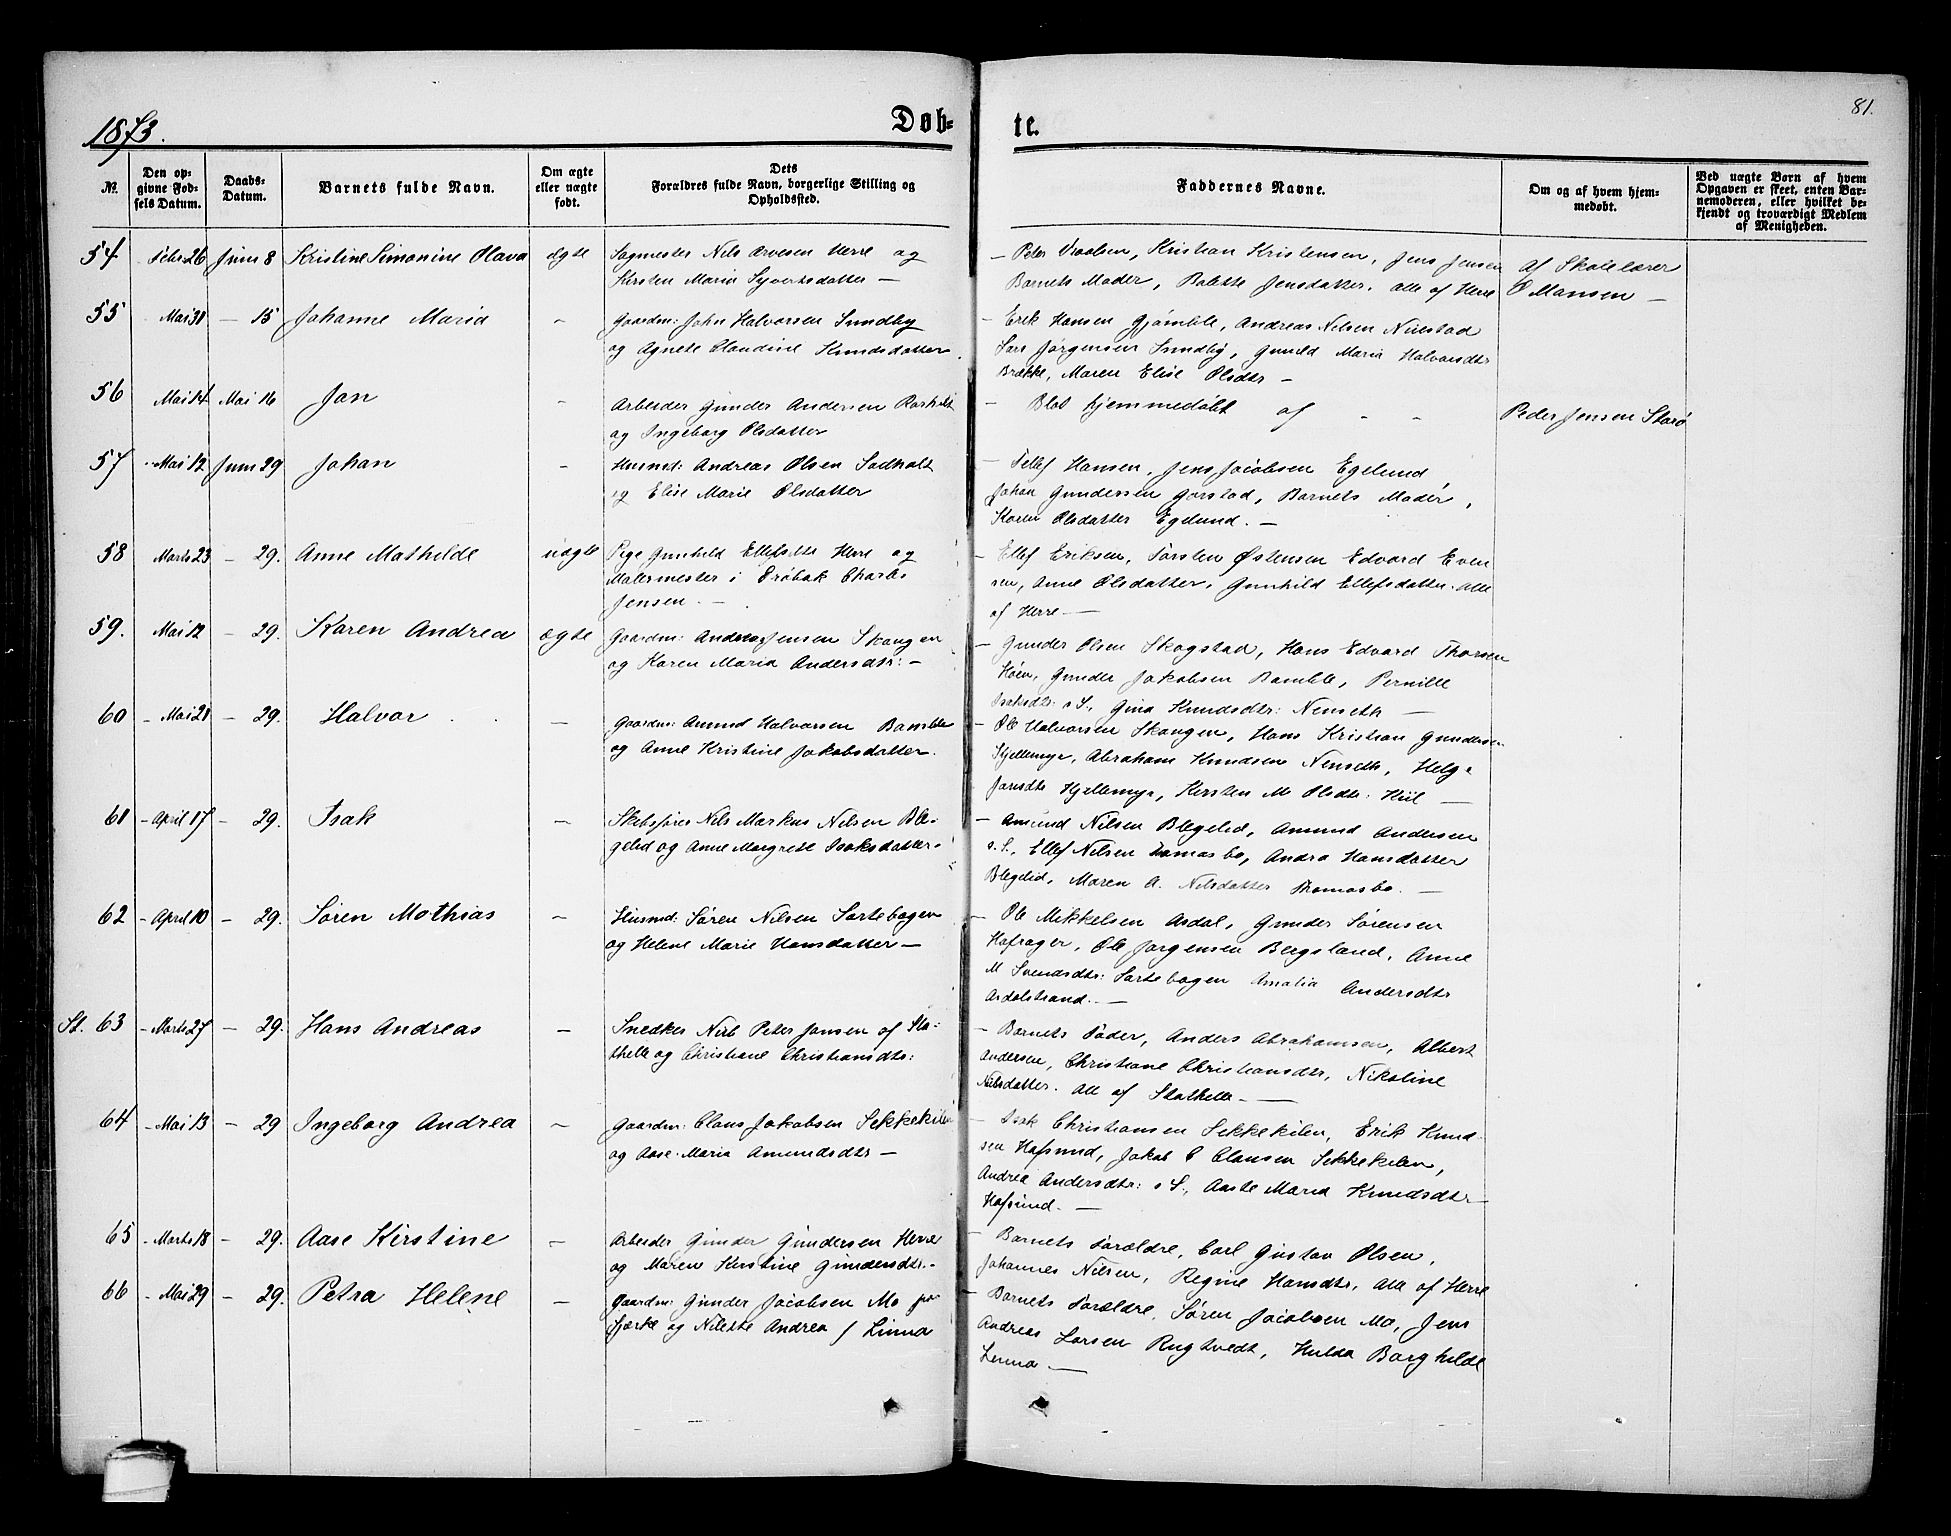 81.
1873. Døb- te.
№.
Den opgivne Fødsels Datum.
Daabs-Datum.
Barnets fulde Navn.
Om ægte eller uægte født.
Dets Forældres fulde Navn, borgerlige Stilling og Opholdssted.
Faddernes Navne.
Om og af hvem hjemmedøbt.
Ved uægte Børn af hvem Opgaven er skeet, enten Barnemoderen, eller hvilket bekjendt og troværdigt Medlem af Menigheden.
54 Febr 26 Juni 8 Kristine Simonine Olava ægte Sagmester Nils Herre og
Kirsten Maria Syvertsdatter —
— Peter Kristian Kristensen, Jens Jensen
Barnets Moder, Bolette Jensdatter. Alle af Herre
Af Skolelærer
O Mansen —
55 Mai 31 — 15 Johanne Maria — Gaardm: John Halvorsen Sundby
og Agnete Claudine Knudsdatter.
— Erik Hansen Gjømble, Andreas Nilsen
Lars Jørgensen Sundby, Gunild Maria Halvorsdtr
Brække, Maren Elise Olsdtr —
56 Mai 14 Mai 16 Jan — Arbeider Gunder Andersen Rørholt
og Ingeborg Olsdatter
— Blot hjemmedøbt af - - Peder Jensen
57 Mai 12 Juni 29 Johan — Husmd: Andreas Olsen
og Elise Marie Olsdatter
— Tellef Hansen, Jens Jacobsen Egelund,
Johan Gundersen Gorstad, Barnets Moder,
Karen Olsdatter Egelund. —
58 Marts 23 — 29. Anne Mathilde uægte Pige Gunhild Ellefsdtr Herre og
Malermester i Drøbak Charles
Jensen. —
— Ellef Eriksen, Torsten Østensen Edvard Even
sen, Anne Olsdatter, Gunhild Ellefsdatter. Alle
af Herre. —
59. Mai 12 — 29. Karen Andrea ægte Gaardm: Anders Jensen Skaugen
og Karen Maria Andersdtr: —
— Gunder Olsen Skogstad, Hans Edvard Thorsen
Høen, Gunder Jakobsen Bamble, Pernille
Isaksdtr: s.S., Gina Knudsdtr: Nenseth —
60 — Mai 21 — 29. Halvor — Gaardm: Amund Halvorsen Bamble
og Anne Kristine Jakobsdatter.
— Ole Halvorsen Skaugen, Hans Kristian Gundersen
Hjellemyr, Abraham Knudsen Nenseth, Helge
Hjellemyr, Kirsten M Olsdtr: Hiil —
61 — April 17 — 29. Isak — Skibsfører Nils Markus Nilsen Ble-
gelid og Anne Margrete Isaksdatter.
— Amund Nilsen Blegelid, Amund Andersen
s.S., Ellef Nilsen Tomasbo, Andra Hansdatter
Blegelid, Maren A. Nilsdatter Thomasbo. —
62 — April 10 — 29. Søren Mathias — Husmd: Søren Nilsen Sortebogen
og Helene Marie Hansdatter —
— Ole Mikkelsen Asdal, Gunder Sørensen
Hafsager, Ole Jørgensen Bergsland, Anne
M Svendsdtr: Sortebogen Amalia Andersdtr
Asdalstrand. —
St. 63 — Marts 27 — 29. Hans Andreas — Snedker Nils Peter Jansen af Sta-
thelle og Christiane Christiansdtr:
— Barnets Fader, Anders Abrahamsen, Albert
Andersen, Christiane Christiansdtr, Nikoline
Nilsdatter. Alle af Stathelle —
64 — Mai 13 — 29 Ingeborg Andrea — Gaardm: Claus Jakobsen Sekkekilen
og Aase Maria Amundsdtr —
— Isak Christiansen Sekkekilen, Erik Knud-
sen Hafsund, Jakob C Clausen Sekkekilen,
Andrea Andersdtr: s.S., Aaste Maria Knudsdtr
Hafsund. —
65 — Marts 18 — 29. Aase Kirstine — Arbeider Gunder Gundersen Herre
og Maren Kirstine Gundersdtr. —
— Barnets Forældre, Carl Gustav Olsen,
Johannes Nilsen, Regine Hansdtr, Alle af Herre
66 — Mai 29 — 29. Petra Helene — Gaardm: Gunder Jacobsen Mo pr
og Nilette Andrea f Linna
— Barnets Forældre, Søren Jacobsen Mo, Jens
Andreas Larsen Rugtvedt, Hulda Borghilde
Linna —